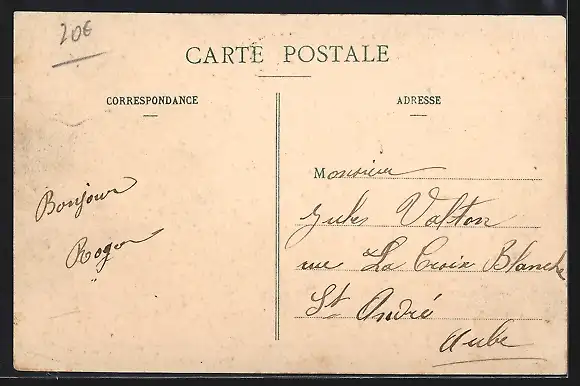 20€
CARTE POSTALE
CORRESPONDANCE
ADRESSE
Bonjour
Roger
Monsieur
Jules Valton
rue La Croix Blanche
St André
Aube